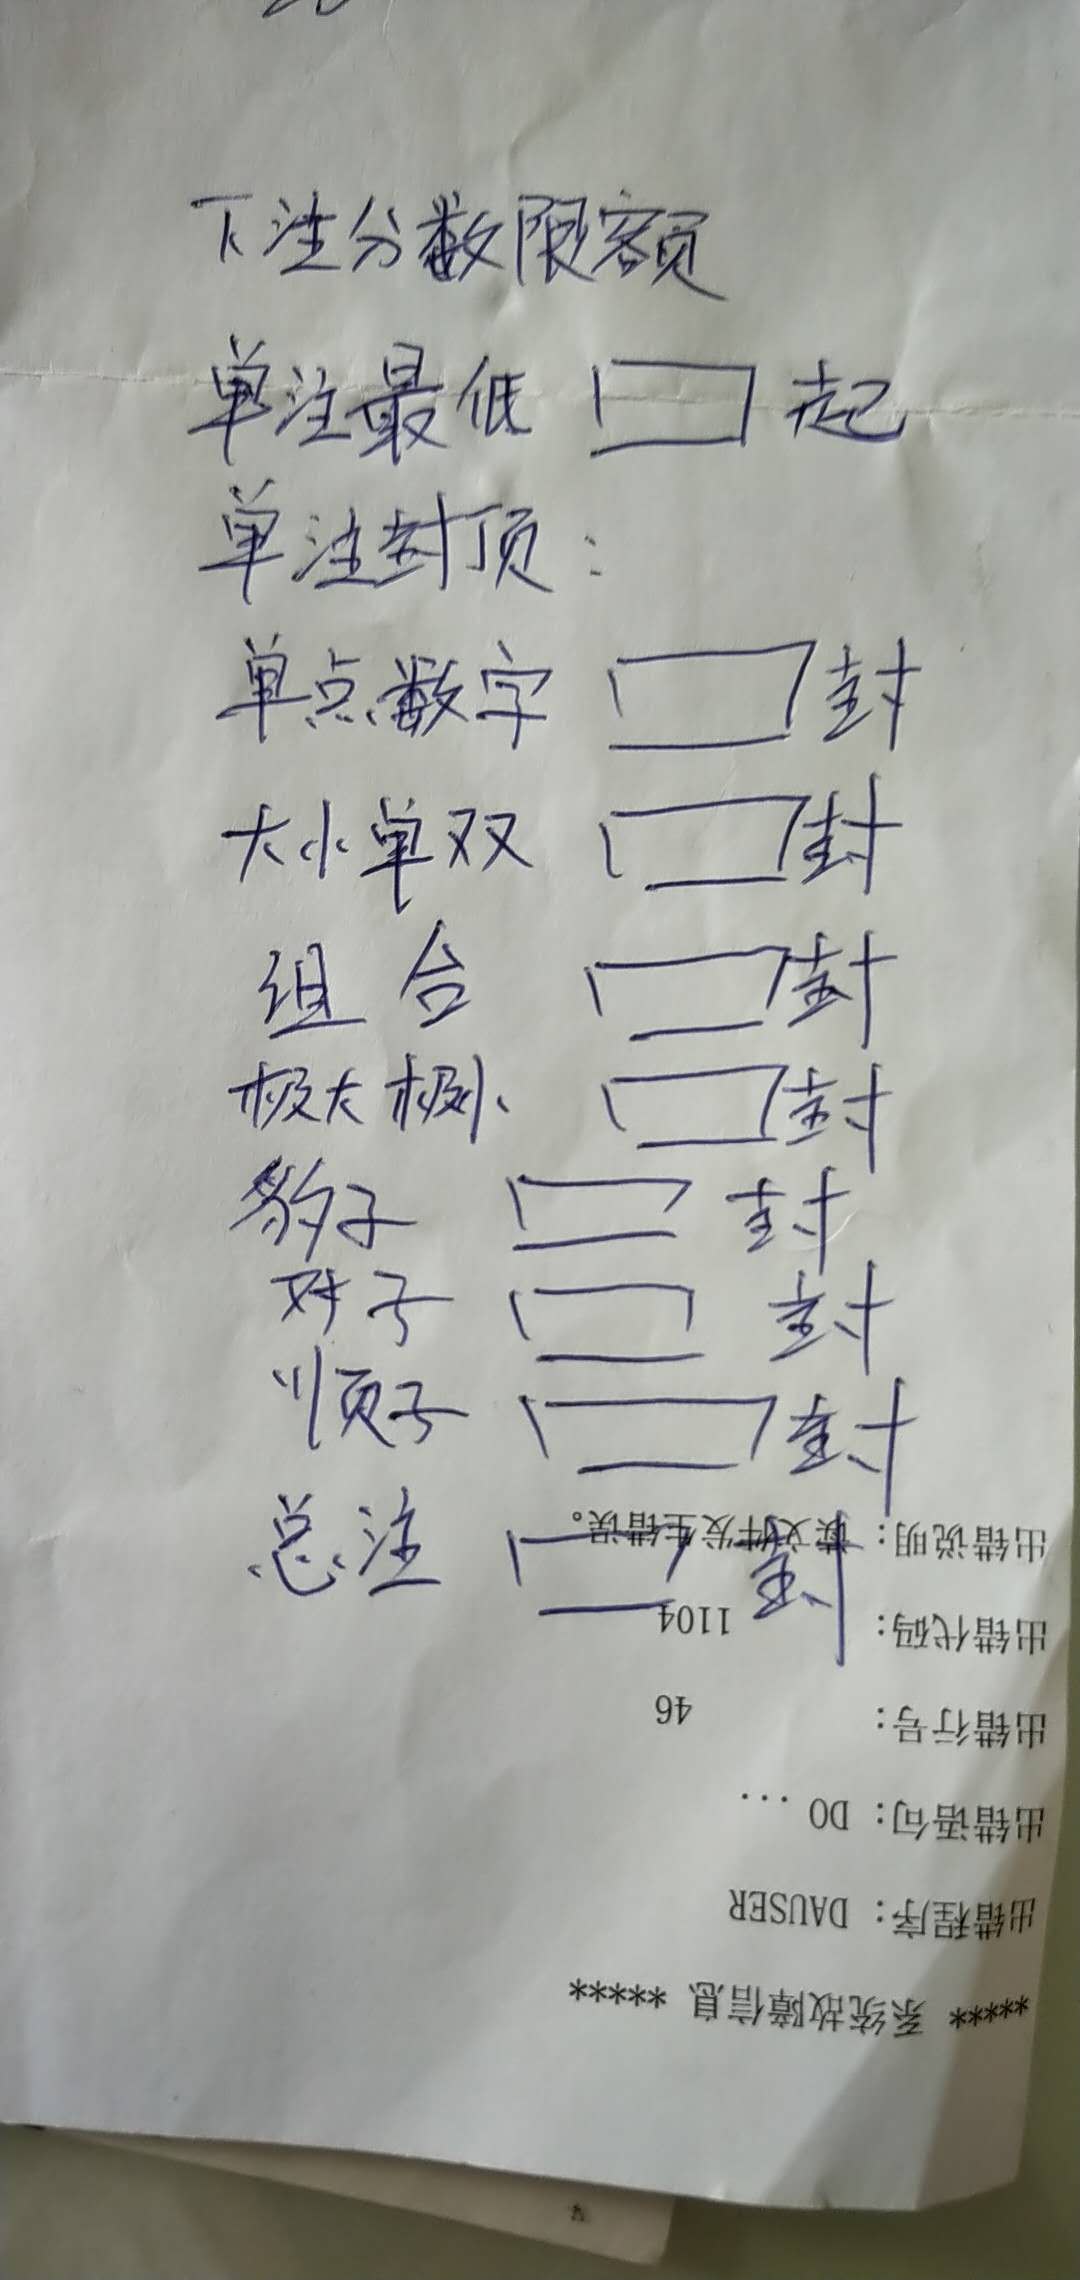 下注分数限额
单注最低 起
单注封顶:
单点数字 封
大小单双 封
组合 封
极大极小 封
豹子 封
对子 封
顺子 封
总注 封
***** 系统故障信息 *****
出错程序: DAUSER
出错语句: DO ...
出错行号: 46
出错代码: 1104
出错说明: 读文件发生错误。